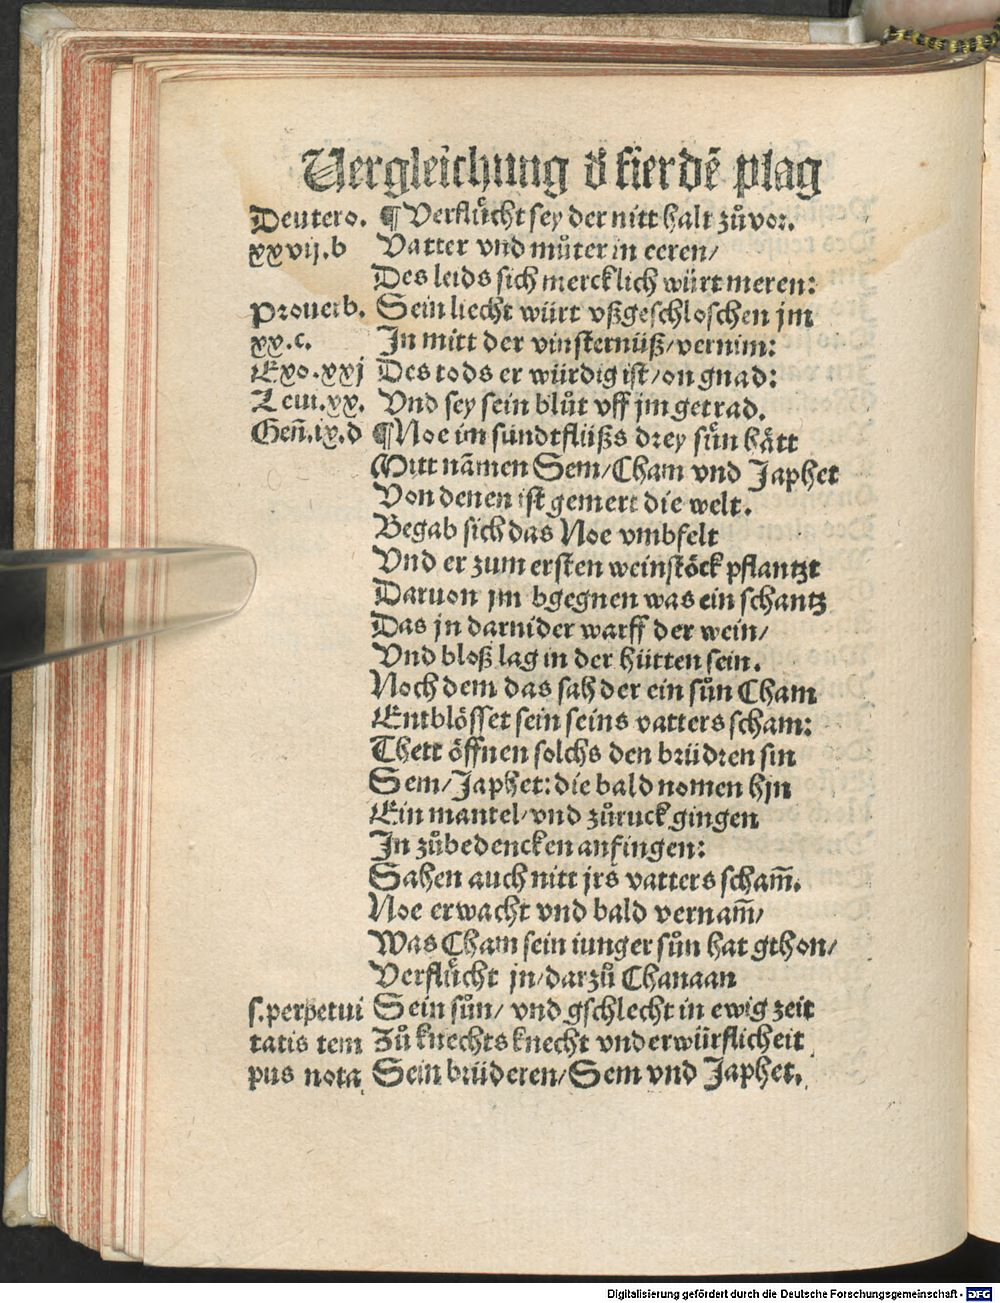 Vergleichung d̕ fierdē plag
Deutero. ¶ Verflůcht sey der nitt halt zůvor.
xxvij.b Vatter vnd můter in eeren/
Des leids sich mercklich würt meren:
Prouerb. Sein liecht würt vßgeschloschen jm
xx.c. In mitt der vinsternüß/vernim:
Exo.xxj Des tods er würdig ist/on gnad:
Leui.xx. Vnd sey sein blůt vff jm getrad.
Geñ.ix.d ¶Noe im sündtflüßs drey sün hått
Mitt nãmen Sem/Cham vnd Japhet
Von denen ist gemert die welt.
Begab sich das Noe vmbfelt
Vnd er zum ersten weinstöck pflantzt
Daruon jm bgegnen was ein schantz
Das jn darnider warff der wein/
Vnd bloß lag in der hütten sein.
Noch dem das sah der ein sůn Cham
Entblösset sein seins vatters scham:
Thett öffnen solchs den brüdren sin
Sem/Japhet: die bald nomen hjn
Ein mantel/vnd zůruck gingen
In zůbedencken anfingen:
Sahen auch nitt jrs vatters scham̃.
Noe erwacht vnd bald vernam̃/
Was Cham sein iunger sůn hat gthon/
Verflůcht jn/darzů Chanaan
s.perpetui Sein sůn/ vnd gschlecht in ewig zeit
tatis tem Zů knechts knecht vnd erwürflicheit
pus nota Sein brüderen/Sem vnd Japhet.
Digitalisierung gefördert durch die Deutsche Forschungsgemeinschaft - DFG